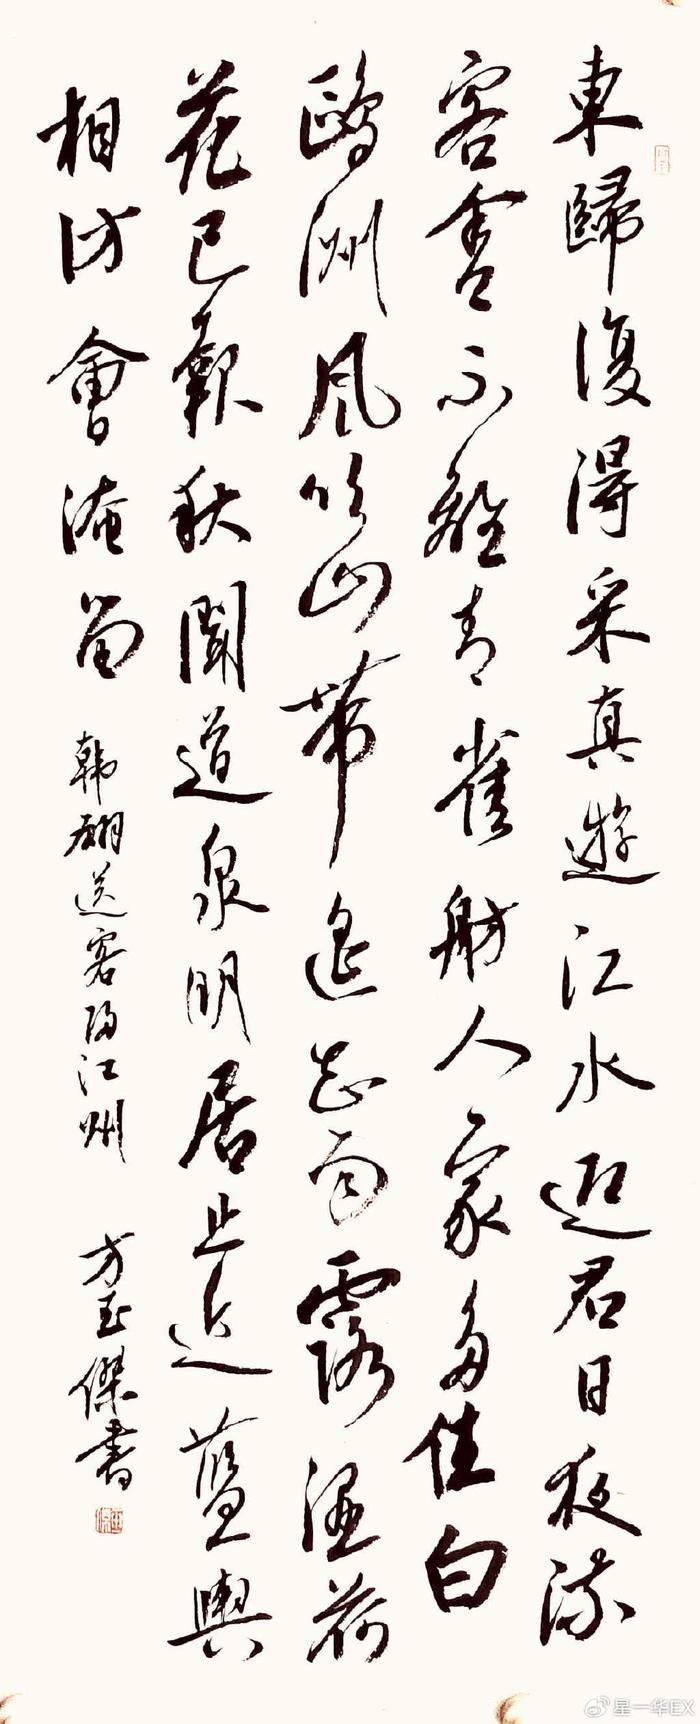 東歸復得采真遊江水迎君日夜流
客舍不離青雀舫人家多住白
鷗洲風吹山帶遙知雨露濕荷
花已報秋聞道泉明居止近藍輿
相訪會淹留 韩翃送客归江州 方玉傑書
星一华EX